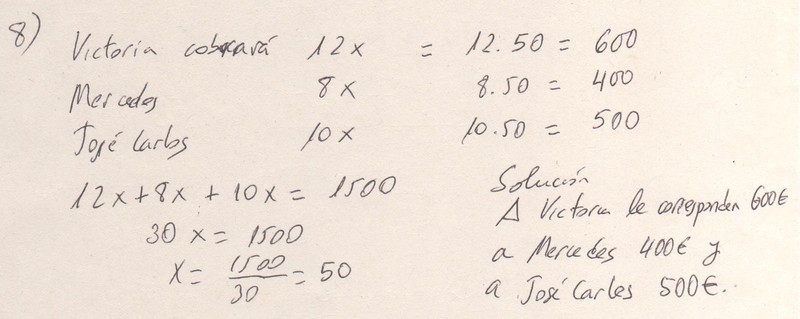 8)
Victoria cobrará 12x = 12.50 = 600
Mercedes 8x 8.50 = 400
José Carlos 10x 10.50 = 500
12x+8x + 10x = 1500
30 x = 1500
x = 1500/30 = 50
Solución
A Victoria le corresponden 600€
a Mercedes 400€ y
a José Carlos 500€.